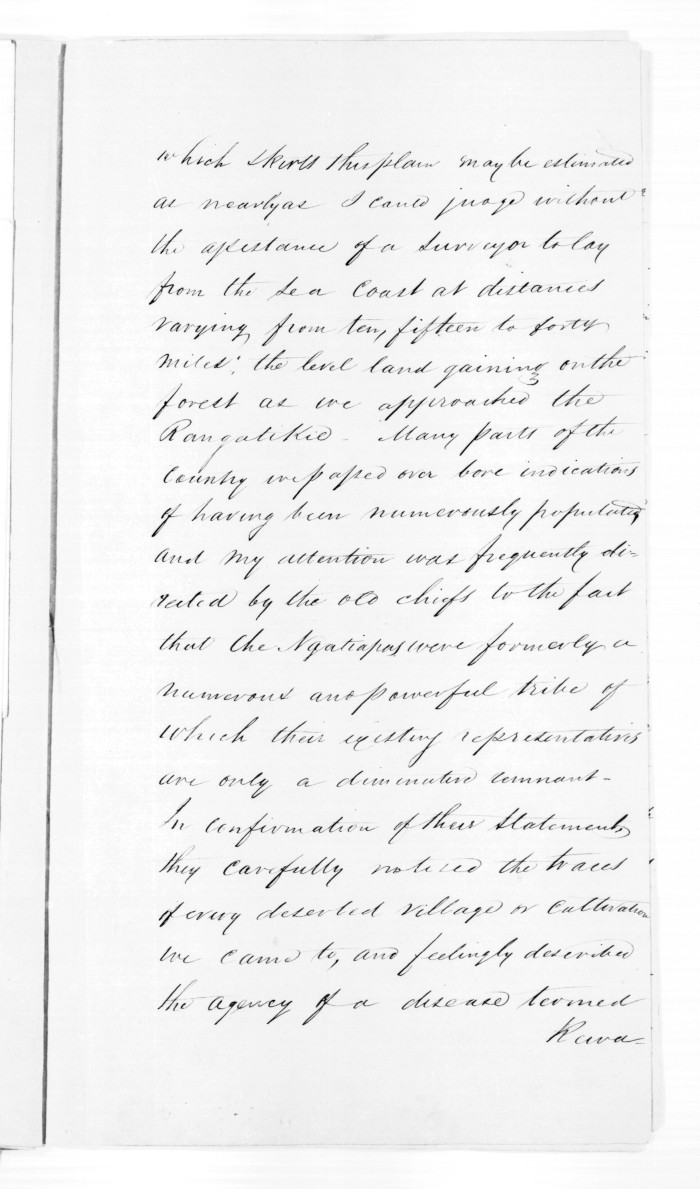 which skirts this plain may be estimated
as nearly as I could judge without
the assistance of a Surveyor to lay
from the Sea Coast at distances
varying from ten, fifteen to forty
miles; the level land gaining on the
forest as we approached the
Rangatikie - Many parts of the
Country we passed over bore indications
of having been numerously populated,
and my attention was frequently di-
rected by the old chiefs to the fact
that the Ngatiapas were formerly a
numerous and powerful tribe of
which their existing representatives
are only a diminutive remnant -
In confirmation of their Statements,
they carefully noticed the traces
of every deserted village or cultivation
we came to, and feelingly described
the agency of a disease termed
Rewa-